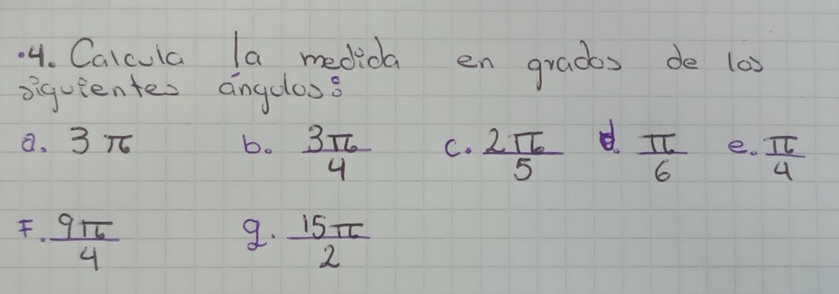 ·4. Calcula la medida en grados de los
siguientes ángulos:
a. 3π b. 3π/4 c. 2π/5 d. π/6 e. π/4
F. 9π/4 g. 15π/2